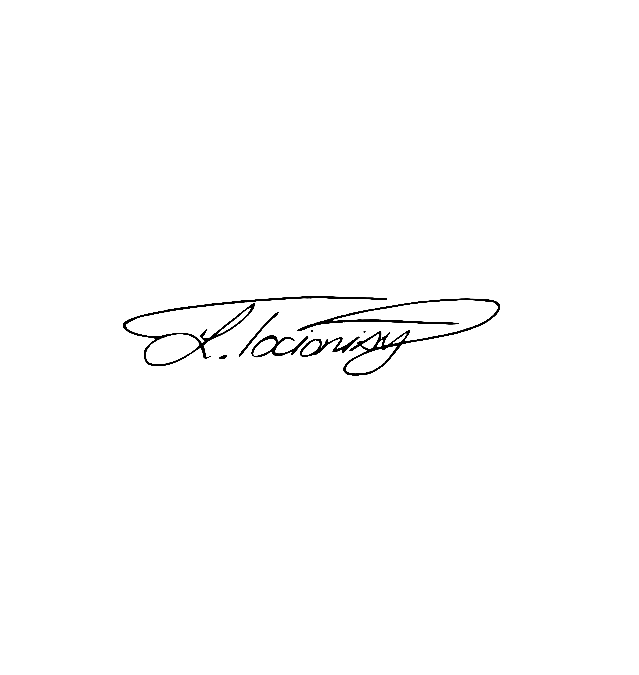 L. Tocionisy